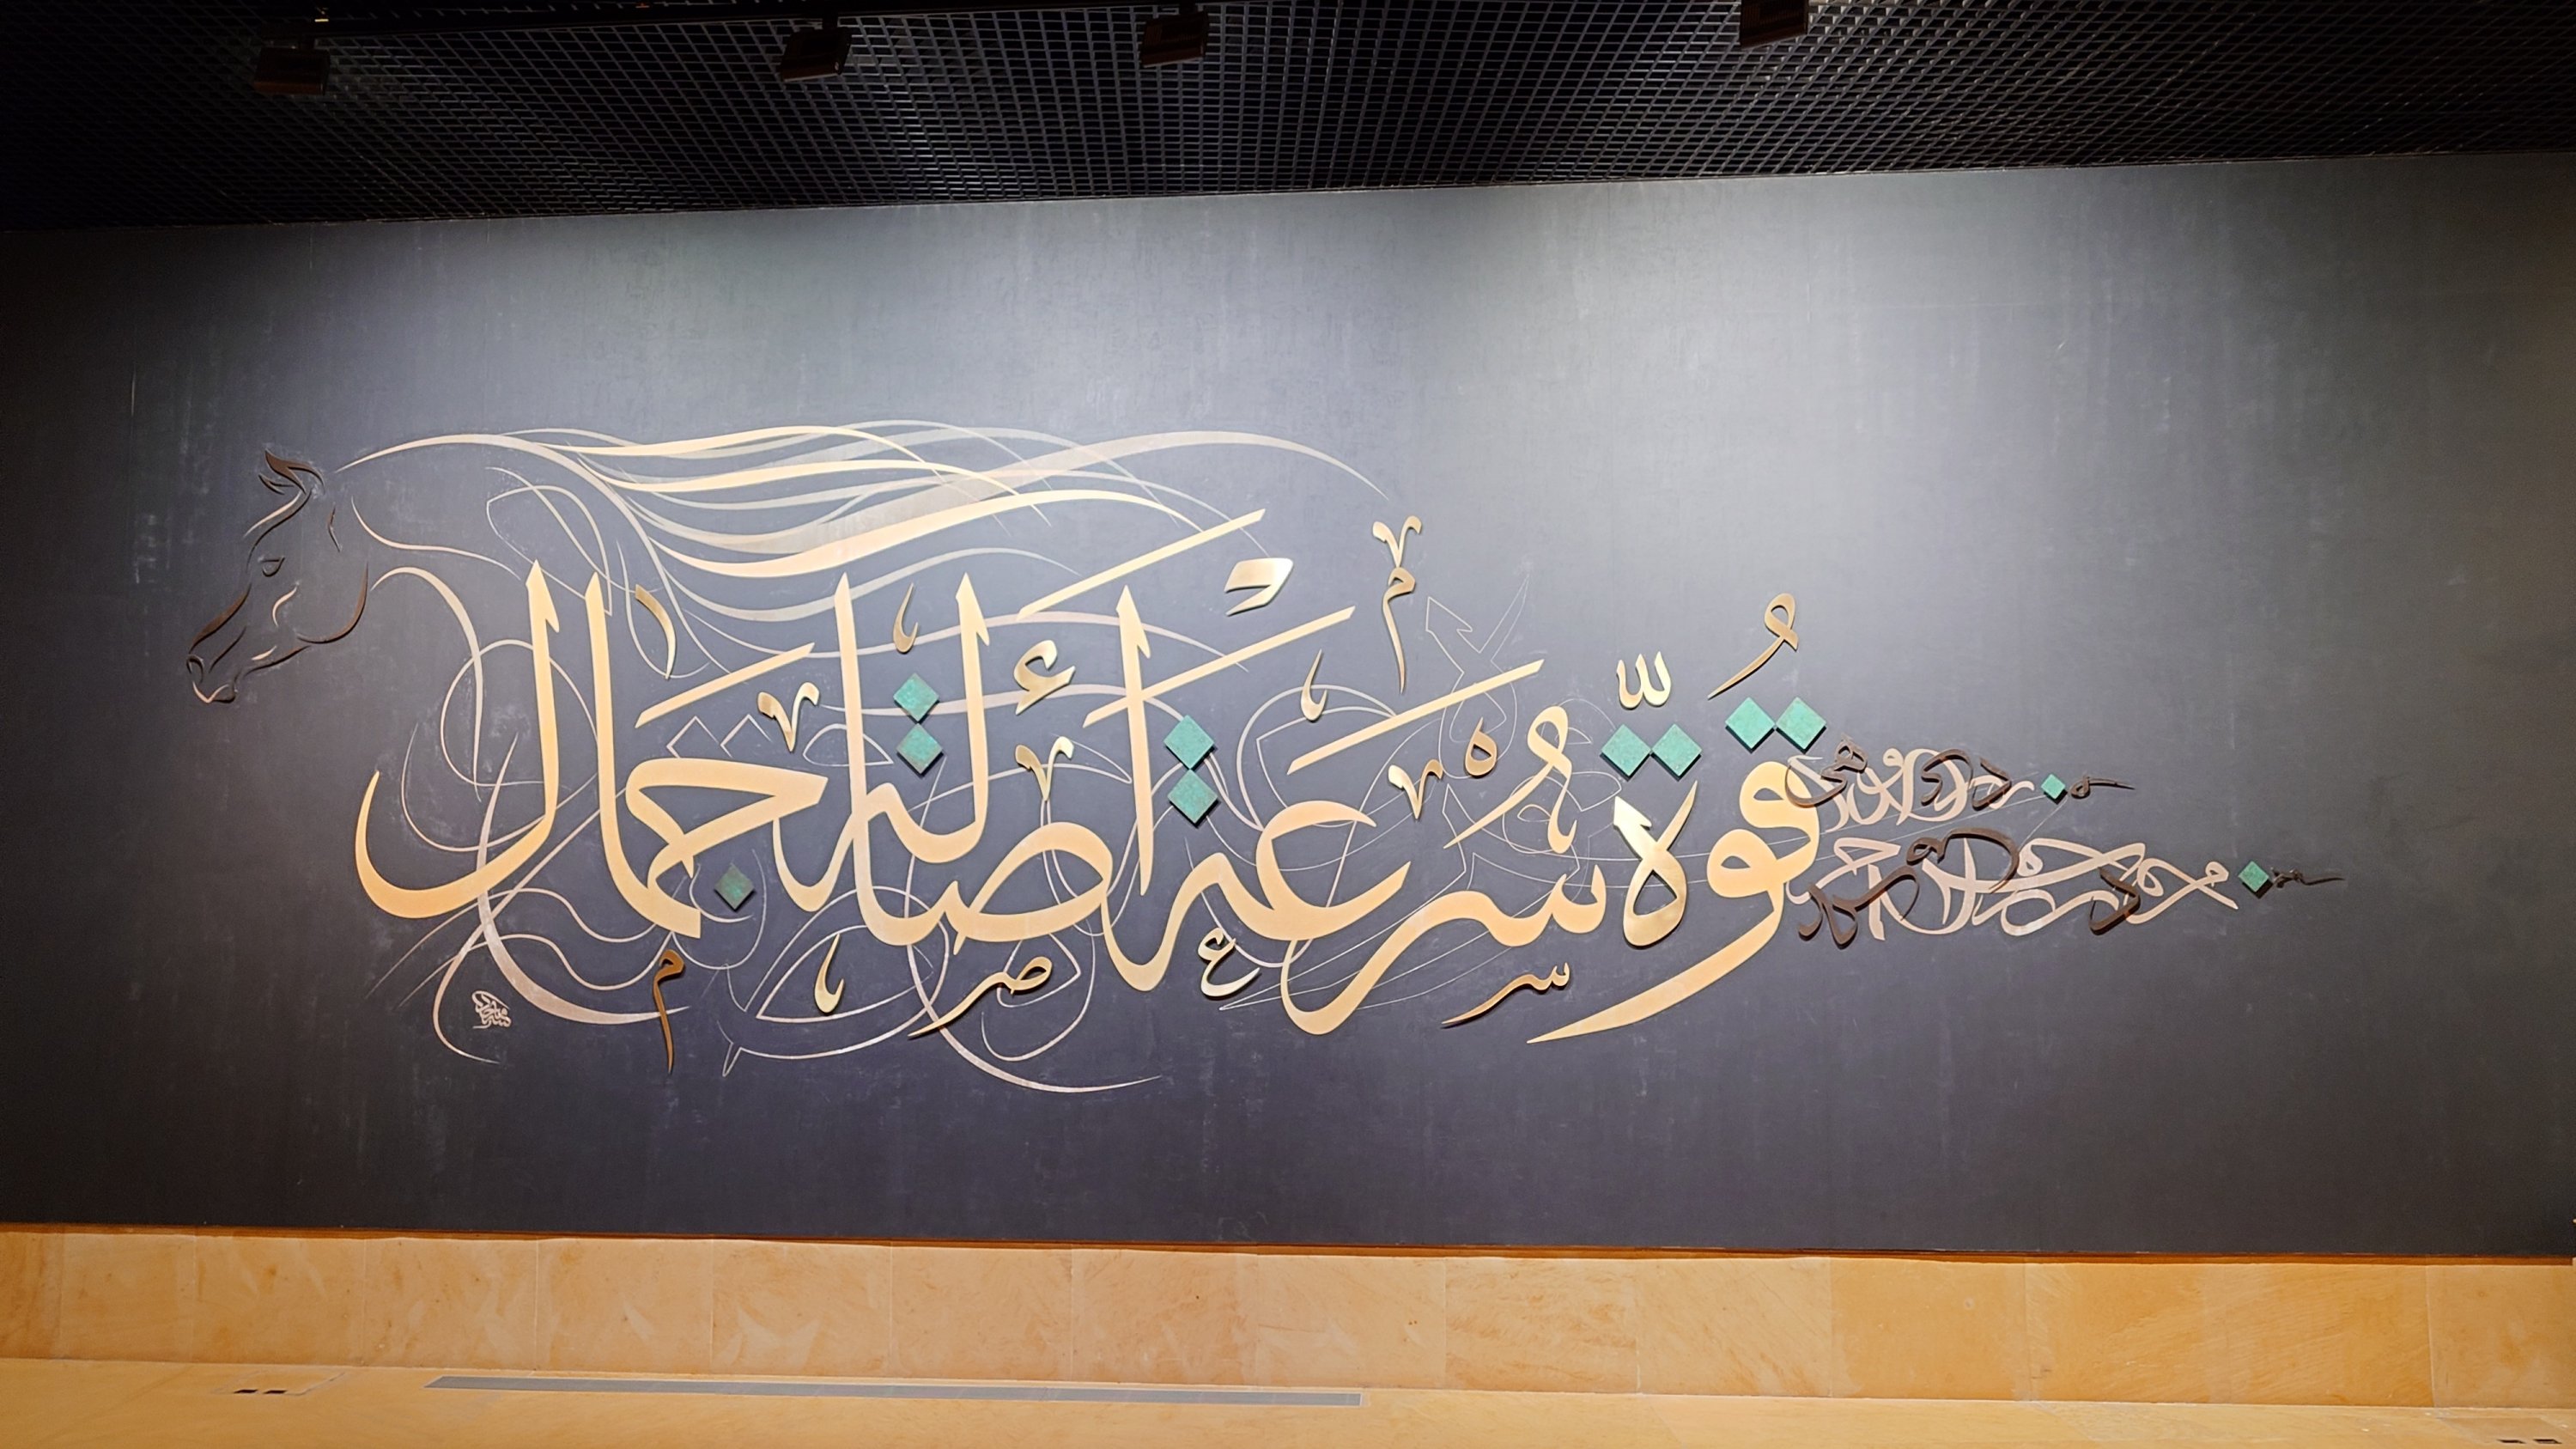 قُوَّة سُرْعَة أَصَالَة جَمَال